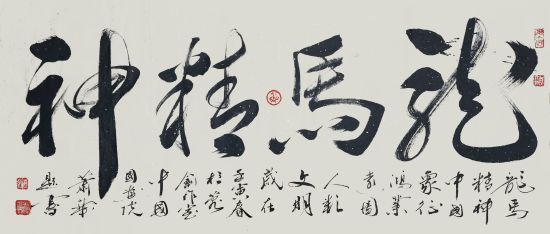 龍馬精神
龍馬
精神
中國
象征
鴻業
宏圖
人類
文明
歲在
壬寅春
於龍
創作堂
中國
國畫院
蕭華
題寫